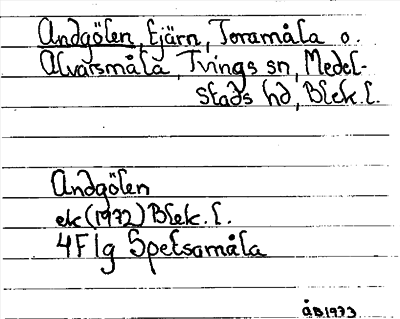 Andgölen, tjärn, Toramåla o.
Alvarsmåla, Tvings sn, Medel-
stads hd, Blek. l.
Andgölen
ek (1972) Blek. l.
4F 1g Spetsamåla
ÅB 1973